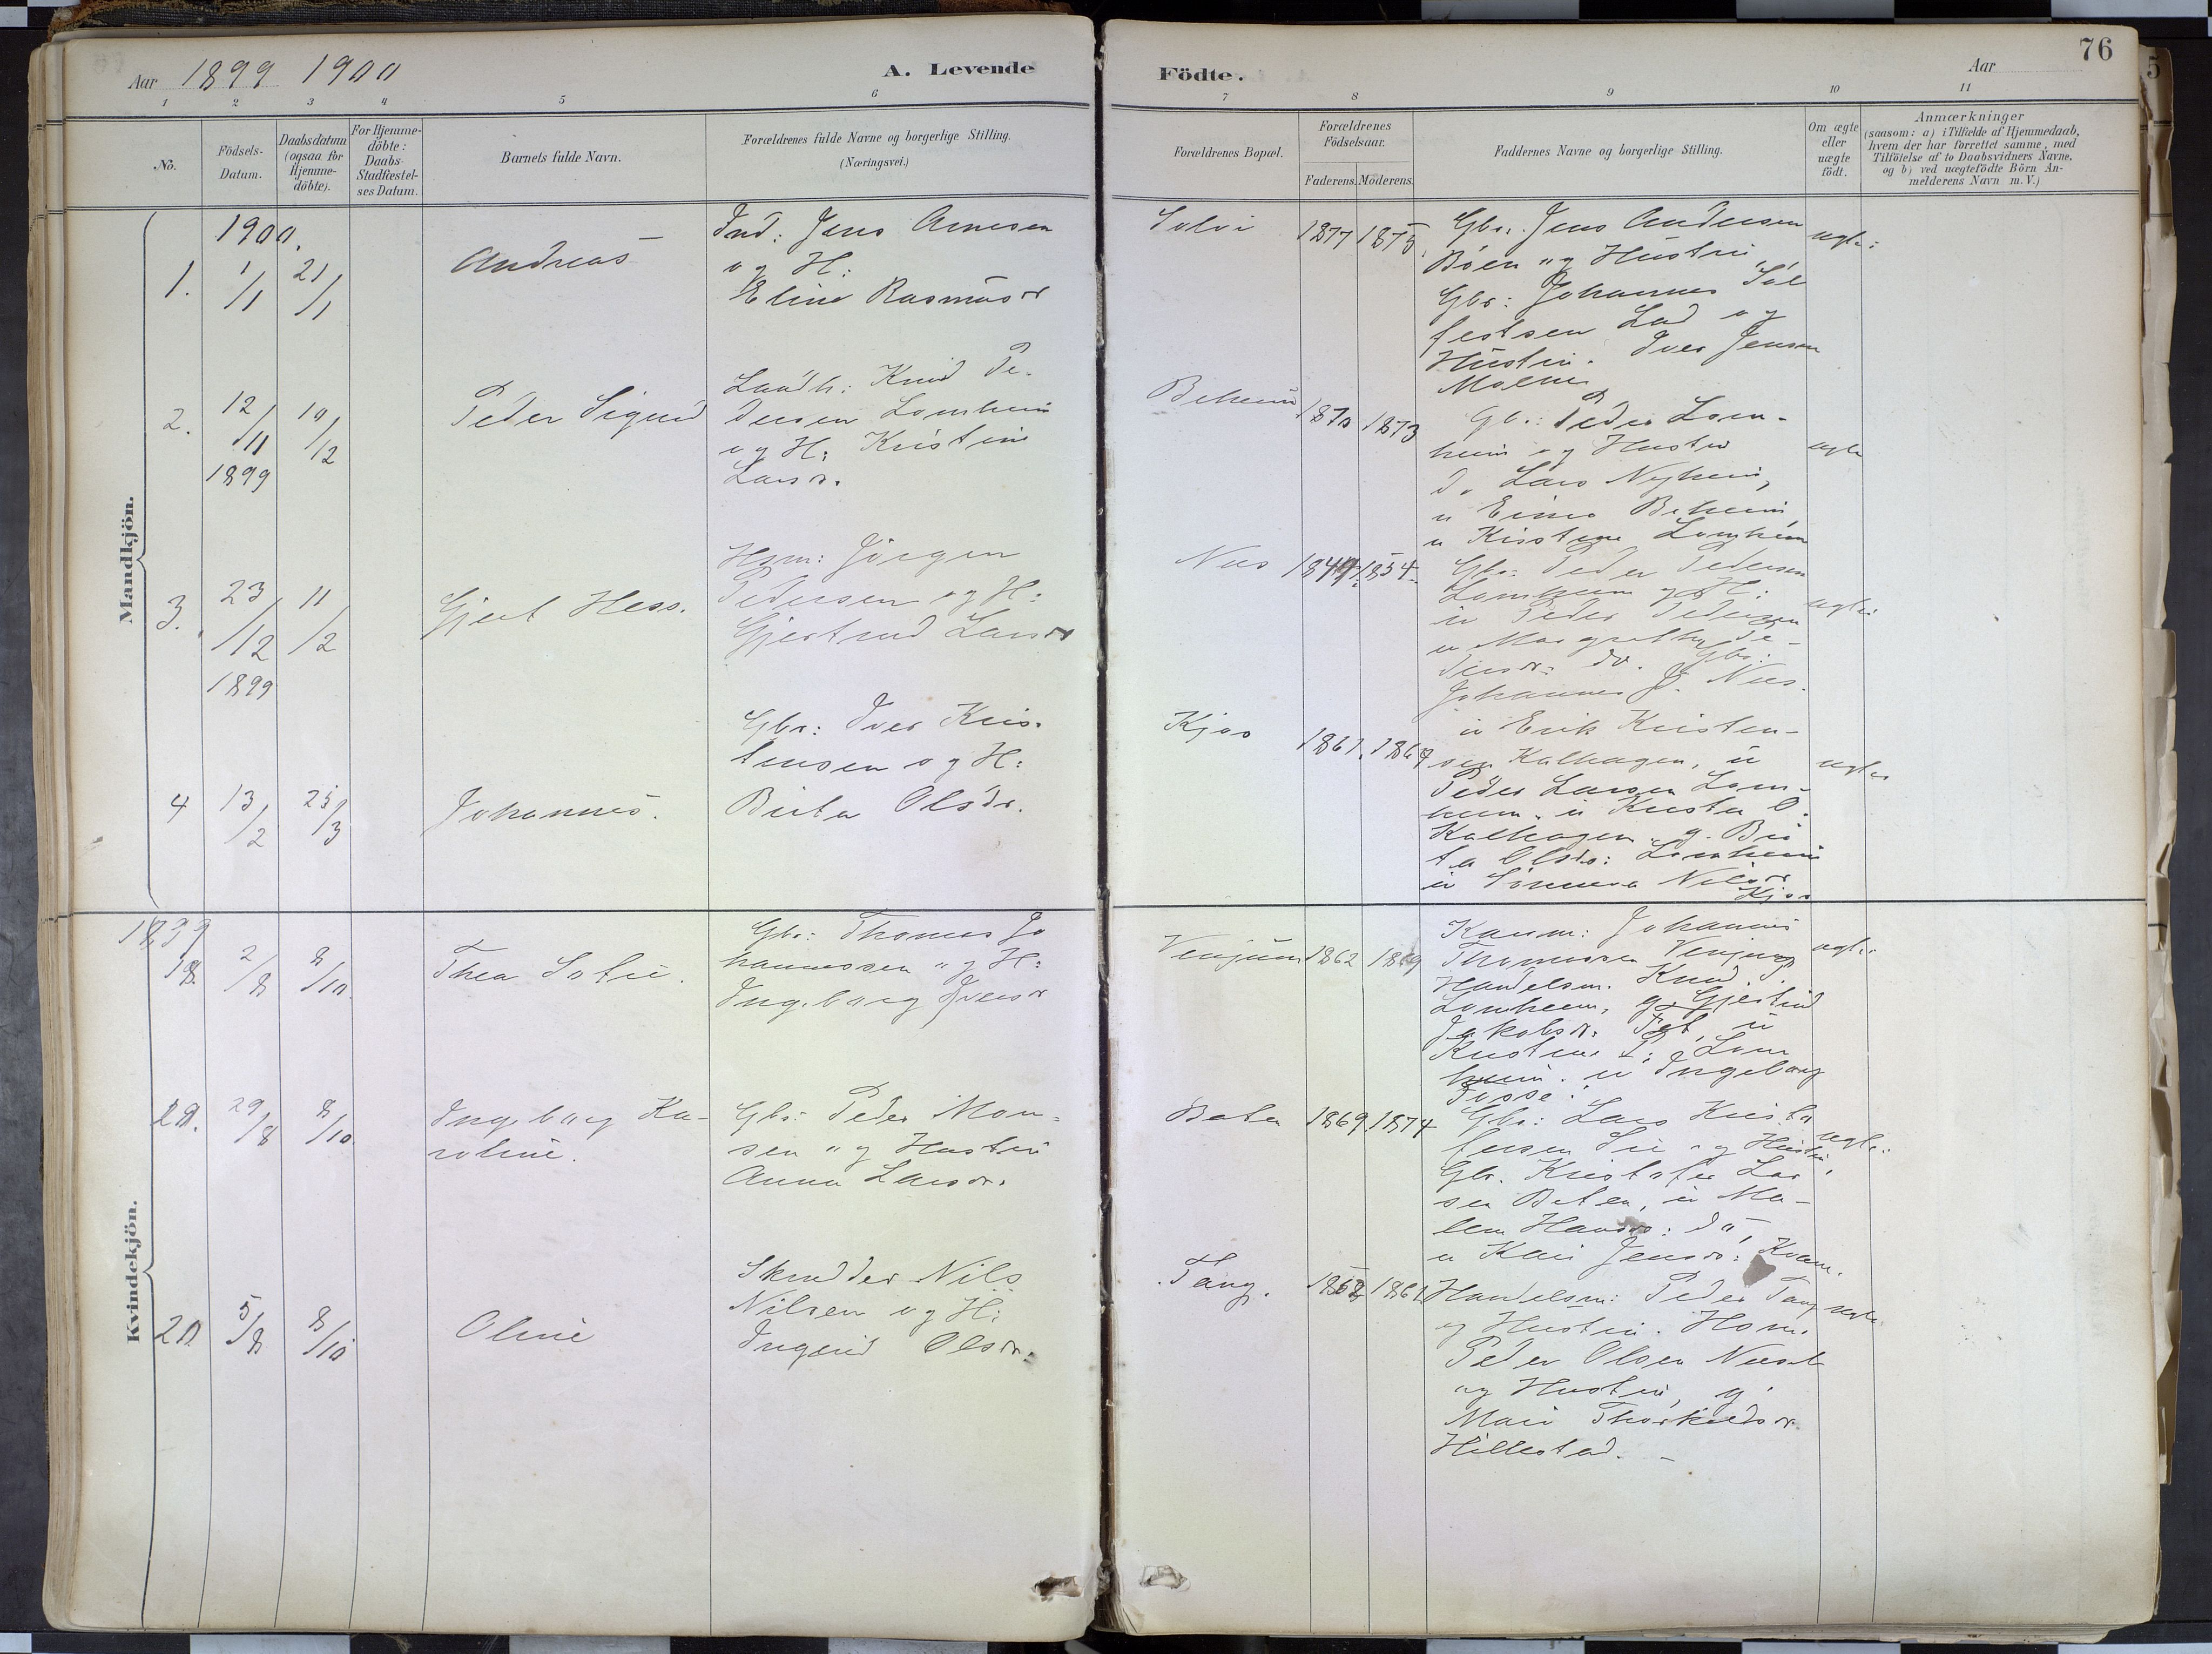 Aar 1899 1900
A. Levende
Födte.
Aar
76
1
2
3
4
5
6
7
8
9
10
11
No.
Födsels-
Datum.
Daabsdatum
(ogsaa for
Hjemme-
döbte).
For Hjemme-
döbte:
Daabs-
Stadfæstel-
ses Datum.
Barnets fulde Navn.
Forældrenes fulde Navne og borgerlige Stilling.
(Næringsvei.)
Forældrenes Bopæl.
Forældrenes
Födselsaar.
Faderens.
Möderens.
Faddernes Navne og borgerlige Stilling.
Om ægte
eller
uægte
födt.
Anmærkninger
(saasom: a) i Tilfælde af Hjemmedaab,
hvem der har forrettet samme, med
Tilföielse af to Daabsvidners Navne,
og b) ved uægtefödte Börn An-
melderens Navn m. V.)
Mandkjön.
1900.
1.
1/1
21/1
Andreas
Ind: Jens Arnesen
og H:
Eline Rasmusdr
Solvi
1877
1875
Gbr. Jens Andersen
Böen og Hustru,
Gbr: Johannes Sül
festsen Lad og
Hustru. Iver Jensen
Molnes
ægte
2.
12/11
1899
10/12
Peder Sigurd
Laudh: Knud Pe-
dersen Lomheim
og H: Kristine
Larsdr.
Beheim
1870
1873
Gbr.: Peder Lom-
heim og Hustru
do Lars Nyheim,
u Einar Beheim
u Kristine Lomheim
ægte
3.
23/12
1899
11/2
Gjert Hess.
Hsm: Jörgen
Pedersen og H:
Gjertrud Larsdr
Nes
1854
Gbr: Peder Pedersen
Lomheim og H:
u Peder Pedersen
u Margrethe Pe-
dersdr: do. Gbr:
Johannes J. Nes.
ægte
4
13/2
25/3
Johannes.
Gbr: Iver Kris-
tensen og H:
Birta Olsdr.
Kjos
1861.
u Erik Kristen-
sen Kalhagen, u
Peder Larsen Lom-
heim. u Krista O.
Kalhagen. g. Bir
ta Olsdr: Lomheim
u Sönneva Nilsdr
Kjos
ægte
Kvindekjön.
1899
18.
2/8
8/10
Thea Sofie.
Gbr: Thomas Jo
hannessen og H:
Ingeborg Iversdr
Venjum
1862
1869
Kaarm: Johannes
Thomassen Venjum
Handelsm. Knud P.
Lomheim, g. Gjertrud
Jakobsdr: u
Kristine L: Lom
heim. u Ingeborg
Fosse.
ægte
29/8
8/10.
Ingeborg Ka-
roline.
Gbr: Peder Mon-
sen og Hustru
Anna Larsdr.
Beta
1869.
1874
Gbr: Lars Kristo
fersen og Hustru,
Gbr. Kristofer Lar
sen Beten, u Ma-
lene Hansdr: do,
u Kari Jensdr: Kvam.
ægte
20
5/8
8/10
Oline
Skrædder Nils
Nilsen og H:
Ingerid Olsdr.
Tang.
1861
Handelsm: Peder Tang
og Hustru. Hsm.
Peder Olsen
og Hustru, g.
Mari Thorkeldsdr.
Hillestad.
ægte